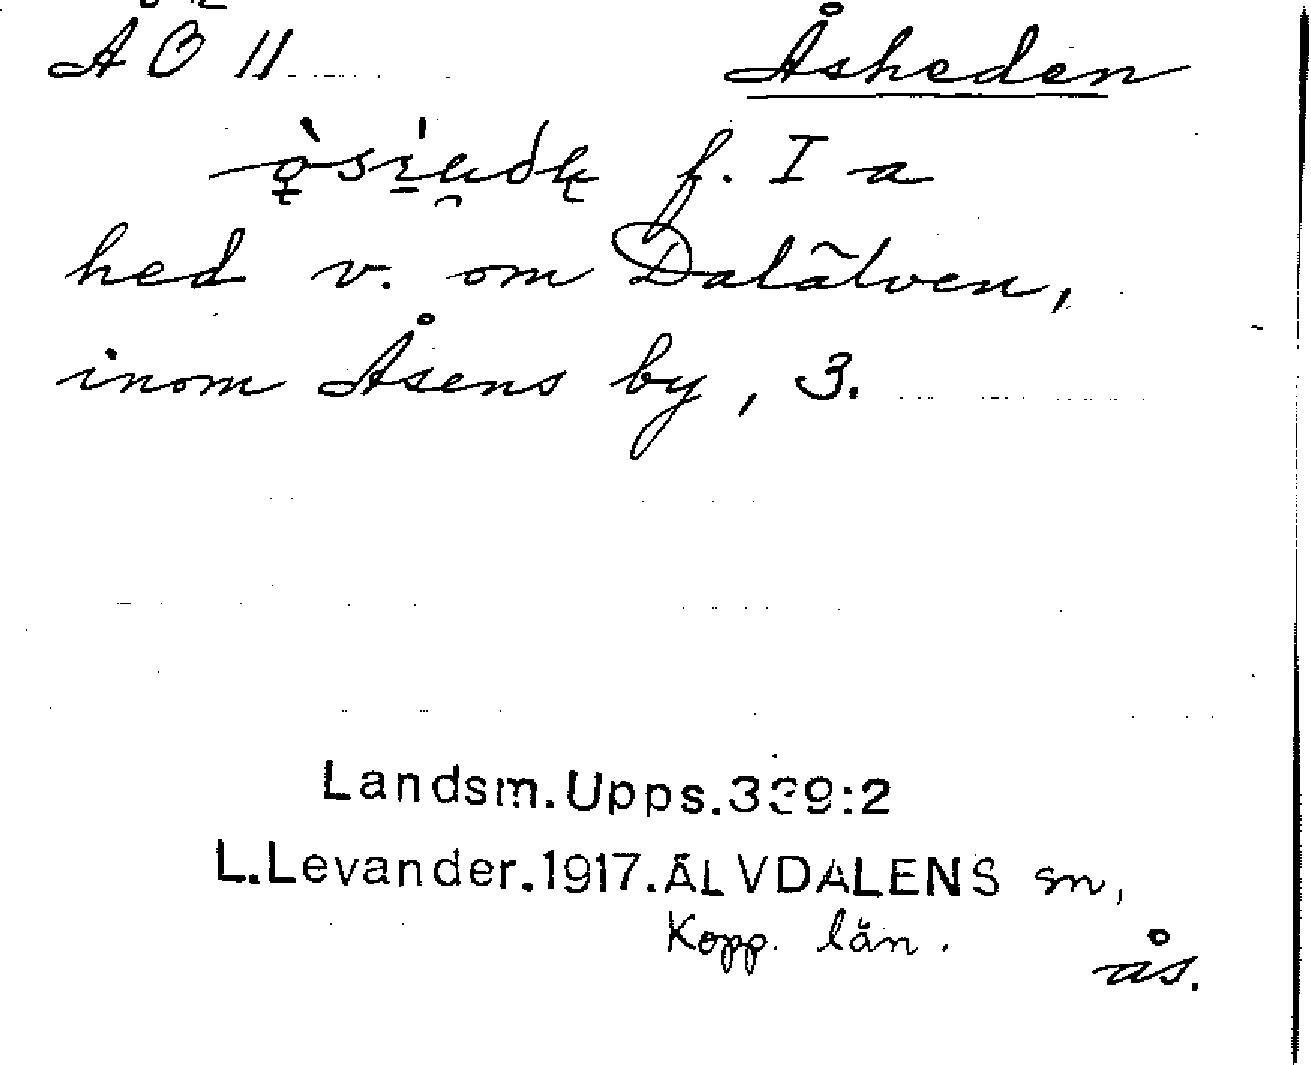 AÖ 11
Åsheden
f. I a
hed v. om Dalälven,
inom Åsens by, 3.
Landsm.Upps.339:2
L.Levander.1917.ÄLVDALENS sn,
Kopp. län.
ås.